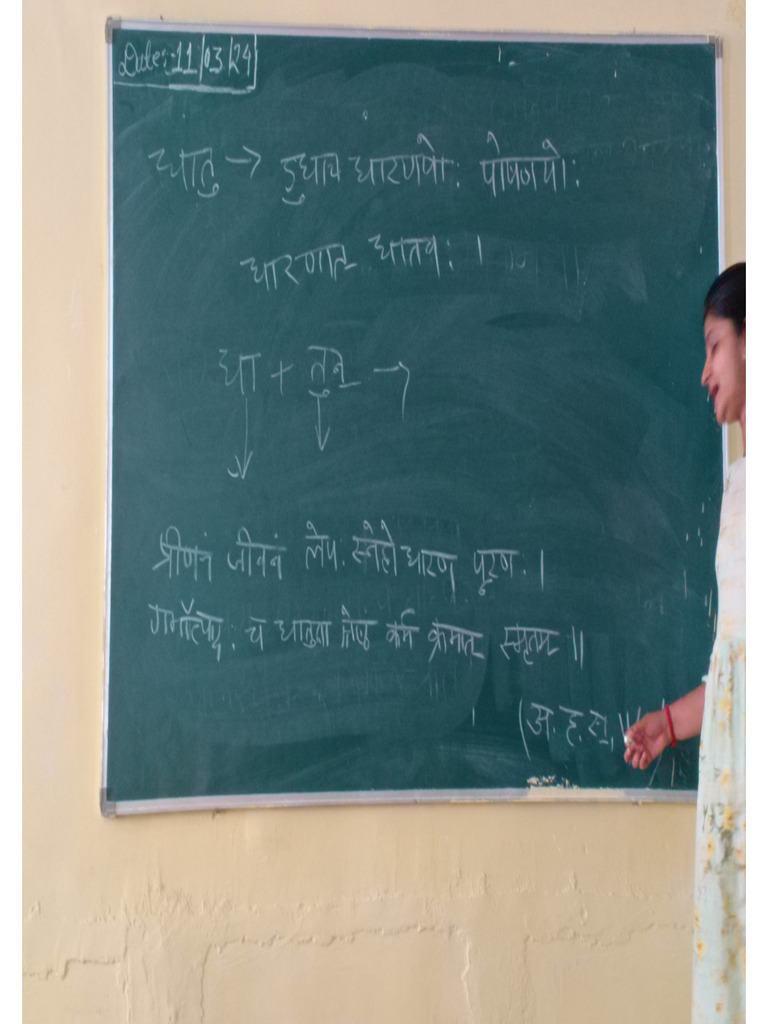 Date:-11/03/24
धातु → डुधाञ धारणयोः पोषणयोः
धारणात् धातवः ।
धा + तुन् →
प्रीणनं जीवनं लेपः स्नेहो धारण पूरणः ।
गर्भोत्पादः च धातुनां श्रेष्ठं कर्म क्रमात् स्मृतम् ॥
(अ.ह.सू.